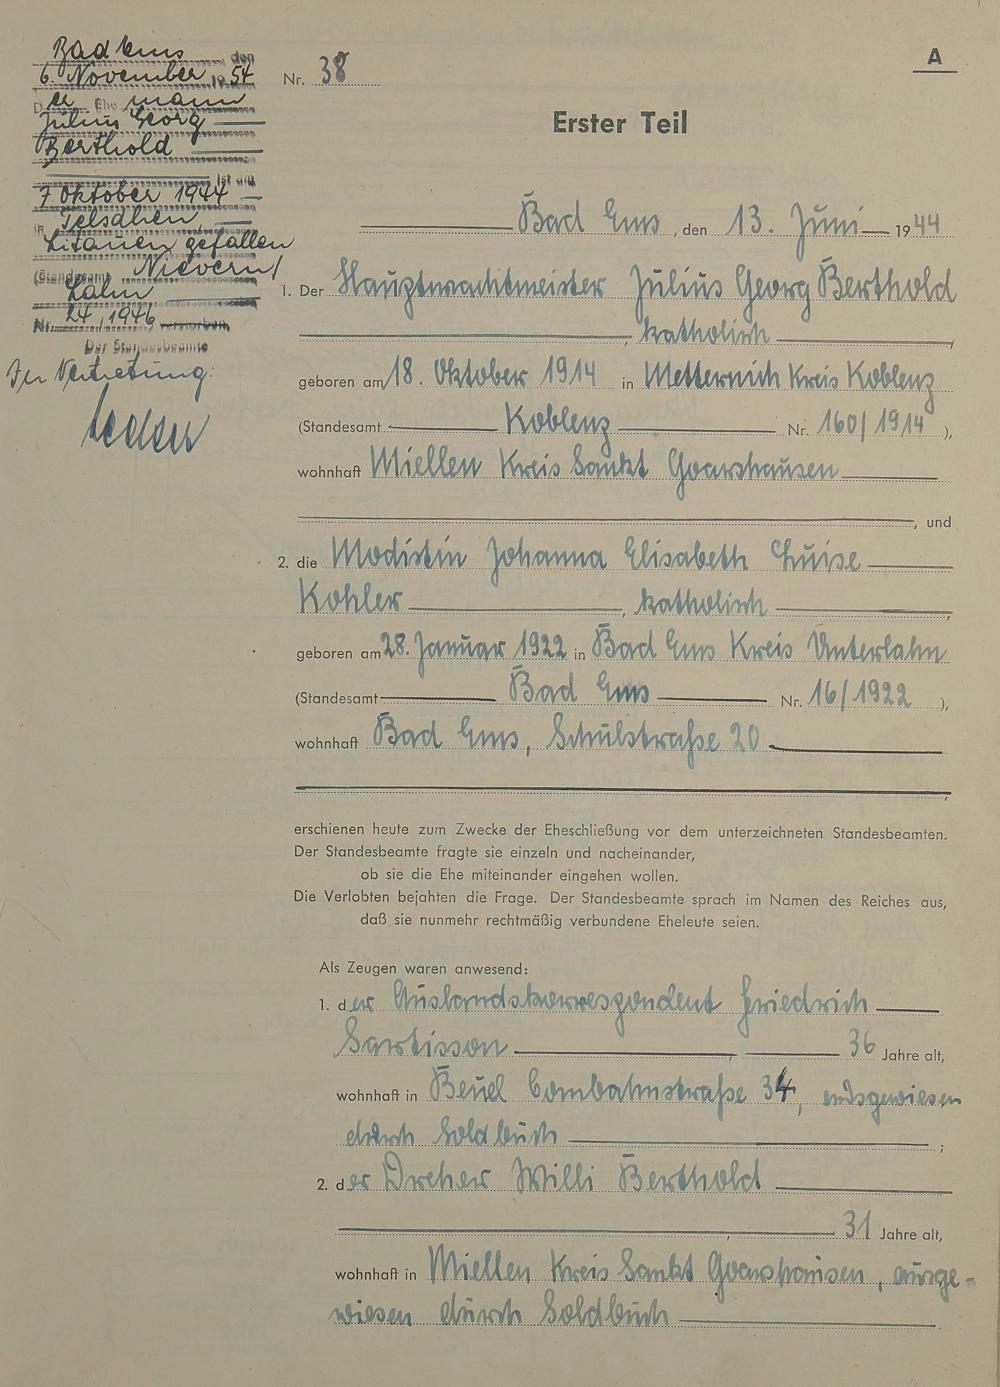 A
Bad Ems, den
6. November 1954
Der Ehemann
Julius Georg
Berthold
ist am
7. Oktober 1944
in Telsdhen
Litauen gefallen
(Standesamt Nievern/
Lahn
Nr. 24/1946 verstorben
Der Standesbeamte
In Vertretung:
Nr. 38
Erster Teil
Bad Ems, den 13. Juni 1944
1. Der Hauptwachtmeister Julius Georg Berthold
, katholisch,
geboren am 18. Oktober 1914 in Metternich Kreis Koblenz
(Standesamt Koblenz Nr. 160/1914),
wohnhaft Miellen Kreis Sankt Goarshausen
, und
2. die Modistin Johanna Elisabeth Luise
Kohler, katholisch,
geboren am 28. Januar 1922 in Bad Ems Kreis Unterlahn
(Standesamt Bad Ems Nr. 16/1922),
wohnhaft Bad Ems, Schulstraße 20
,
erschienen heute zum Zwecke der Eheschließung vor dem unterzeichneten Standesbeamten.
Der Standesbeamte fragte sie einzeln und nacheinander,
ob sie die Ehe miteinander eingehen wollen.
Die Verlobten bejahten die Frage. Der Standesbeamte sprach im Namen des Reiches aus,
daß sie nunmehr rechtmäßig verbundene Eheleute seien.
Als Zeugen waren anwesend:
1. der Auslandskorrespondent Friedrich
Sartisson, 36 Jahre alt,
wohnhaft in Beuel Combahnstraße 34, ausgewiesen
durch Soldbuch;
2. der Dreher Willi Berthold
, 31 Jahre alt,
wohnhaft in Miellen Kreis Sankt Goarshausen, ausge-
wiesen durch Soldbuch.